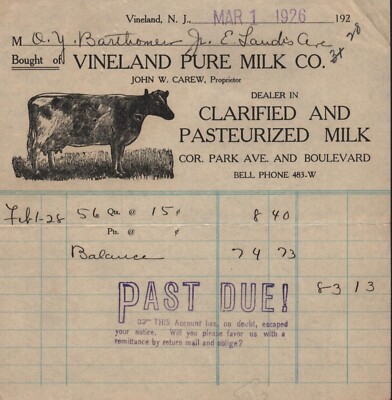 Vineland, N. J., MAR 1 1926 192
M O. Y. Barthomew Jr. E. Landis Ave
Bought of VINELAND PURE MILK CO.
JOHN W. CAREW, Proprietor
DEALER IN
CLARIFIED AND
PASTEURIZED MILK
COR. PARK AVE. AND BOULEVARD
BELL PHONE 483-W
Feb 1-28 56 Qts. @ 15 ¢ 8 40
Pts. @ ¢
Balance 74 73
83 13
PAST DUE!
THIS Account has, no doubt, escaped
your notice. Will you please favor us with a
remittance by return mail and oblige?